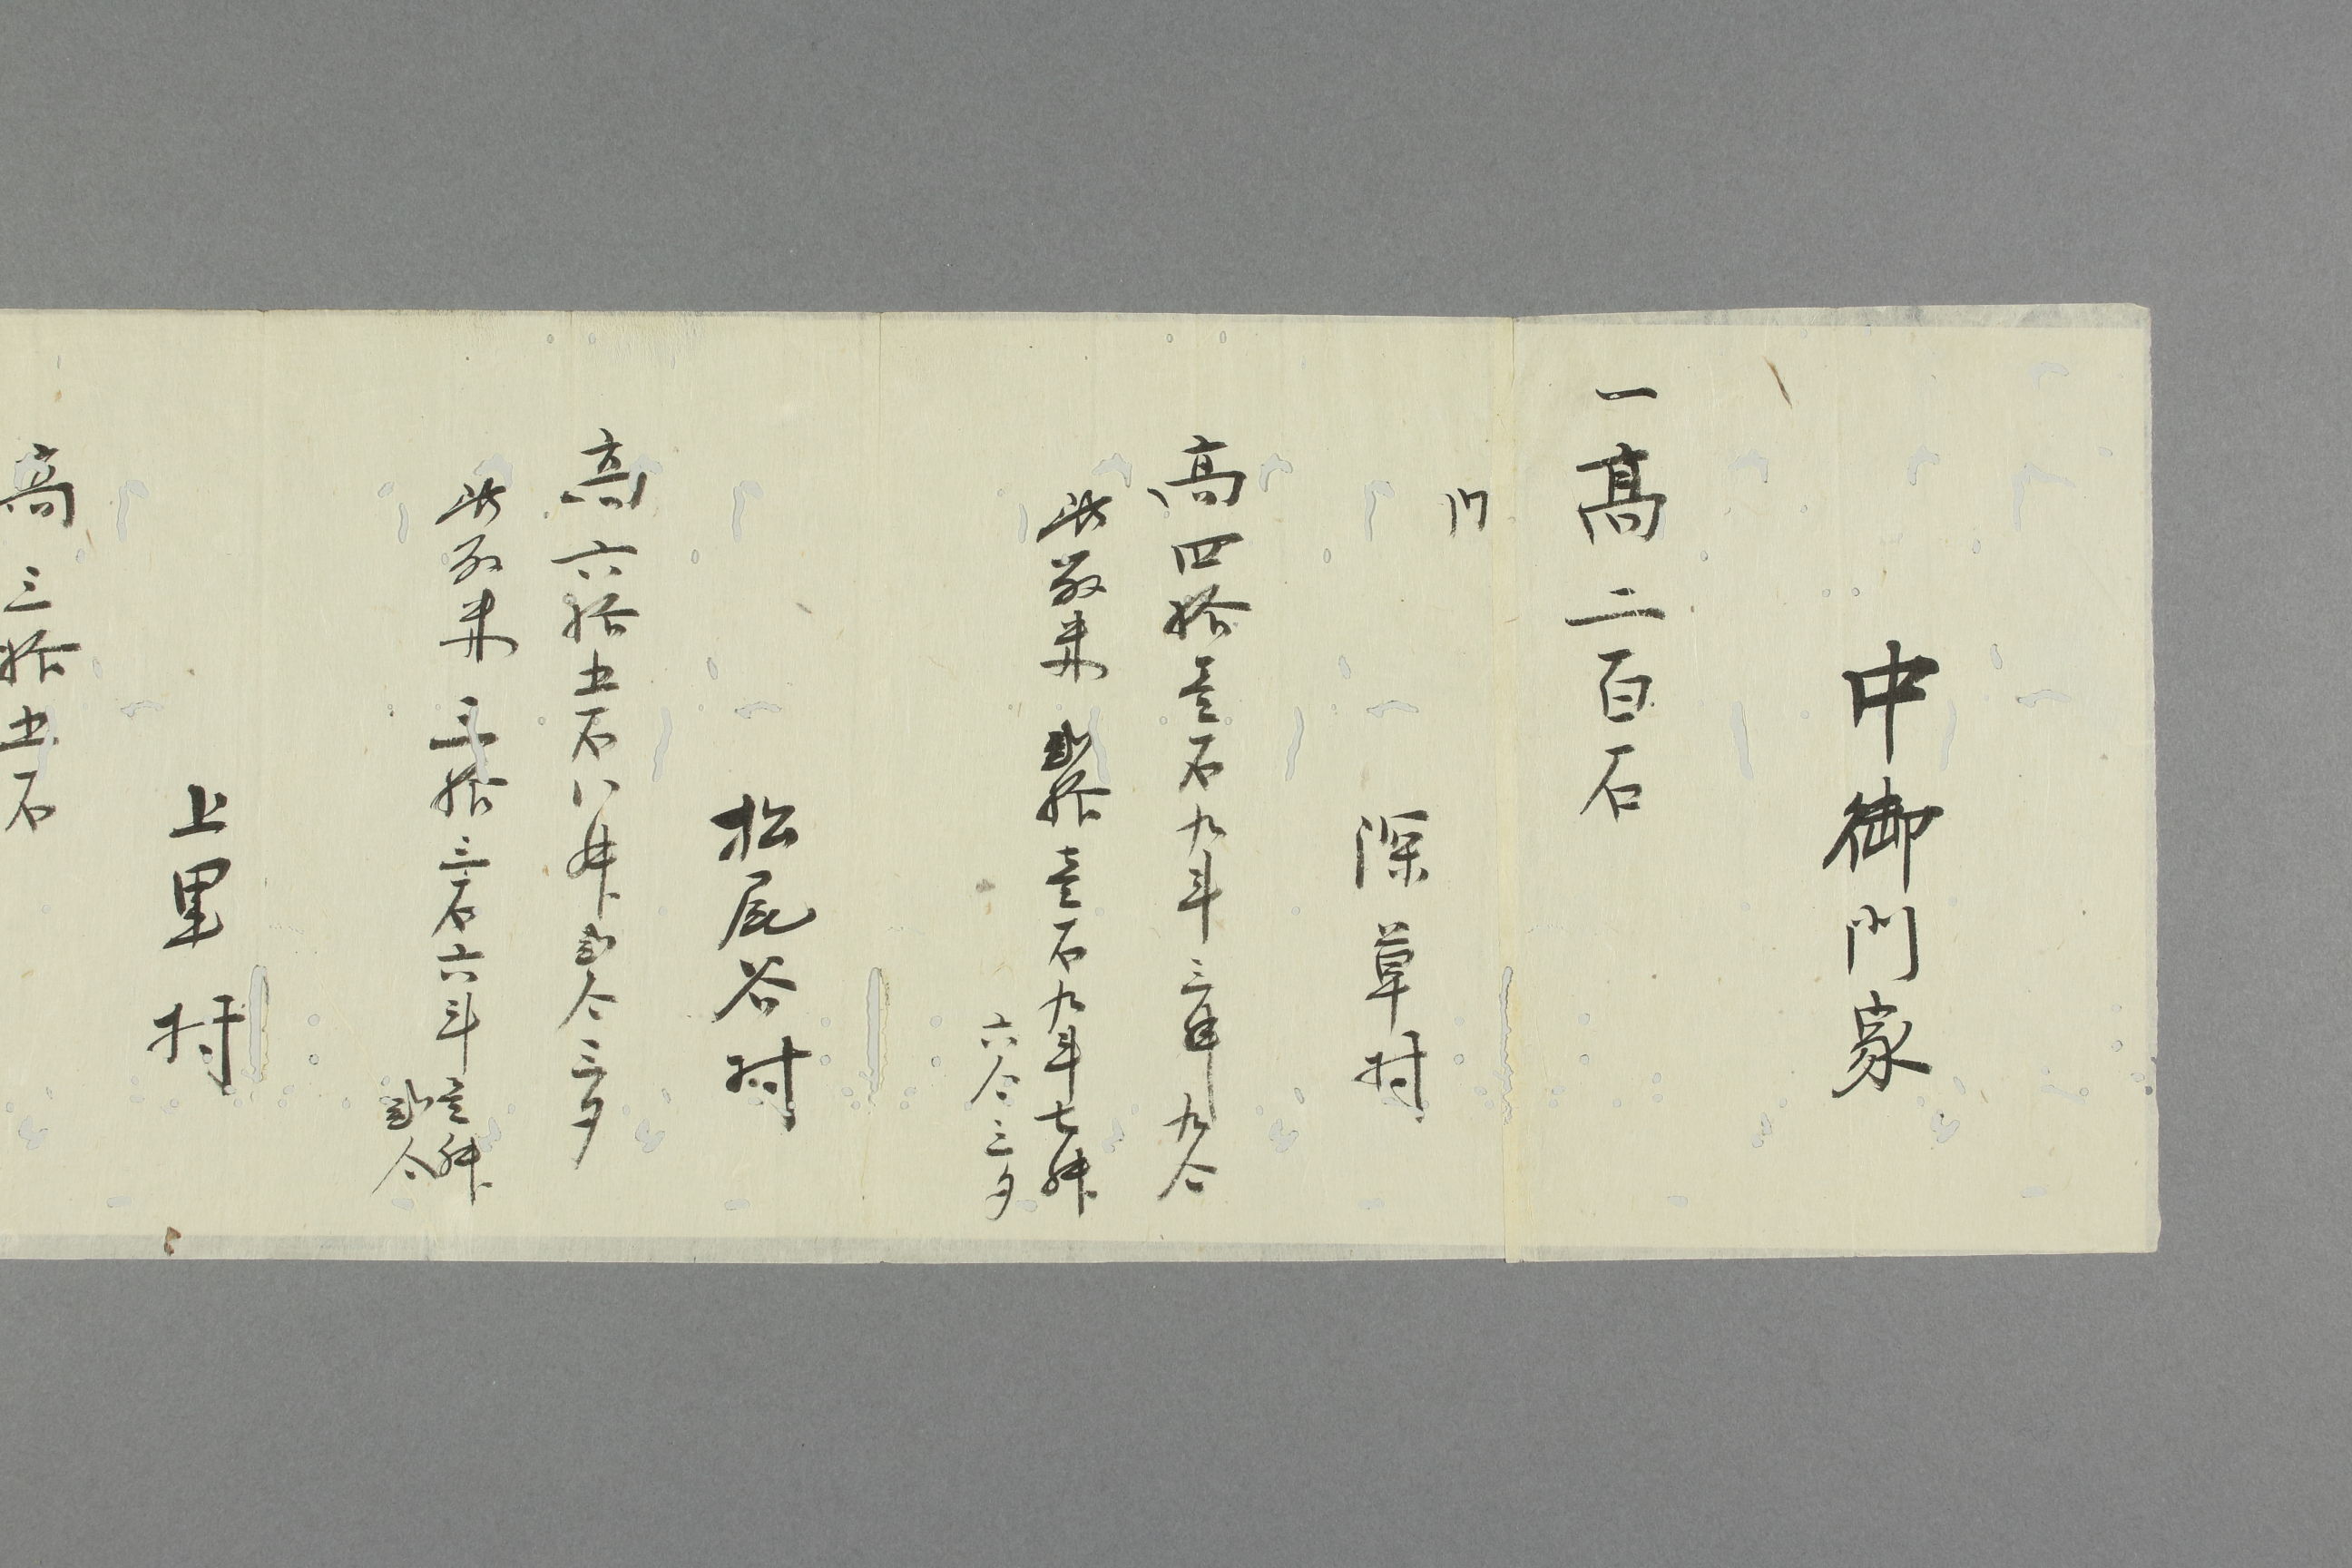 中御門家
一高二百石
内
深草村
高四拾壱石九斗三升九合
此放米弐拾壱石九斗七升
六合三夕
松尾谷村
高六拾五石八升弐合三夕
此放米三拾三石六斗壱升
弐合
上里村
高三拾五石